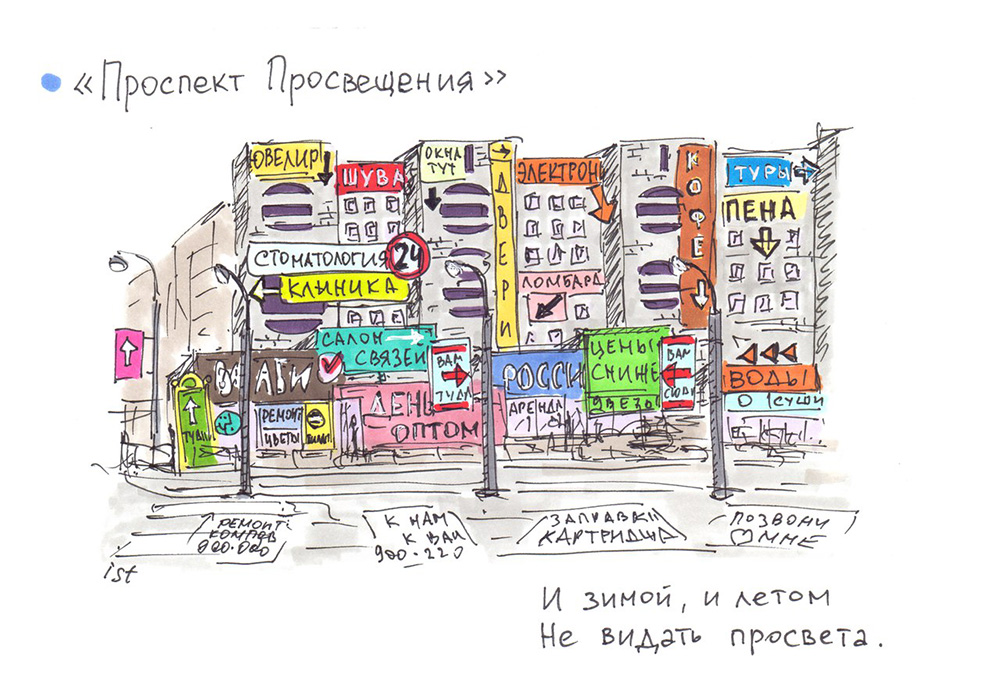 «Проспект Просвещения»
ЮВЕЛИР
ШУБА
ОКНА
ТУТ
ДВЕРИ
ЭЛЕКТРОН
КОФЕ
ТУРЫ
ПЕНА
СТОМАТОЛОГИЯ 24
КЛИНИКА
ЛОМБАРД
САЛОН
СВЯЗЕЙ
ВАМ
ТУДА
РОССИ
ЦЕНЫ
СНИЖЕ
ЗВЕЗДЫ
ВАМ
СЮДА
ВОДЫ
О !СУШИ
ТУДЫ
РЕМОНТ
ЦВЕТЫ
ДЕНЬ
ОПТОМ
АРЕНДА
РЕМОНТ
КОМПОВ
900-000
К НАМ
К ВАМ
900-220
ЗАПРАВКИ
КАРТРИДЖА
ПОЗВОНИ
МНЕ
ist
И зимой, и летом
Не видать просвета.